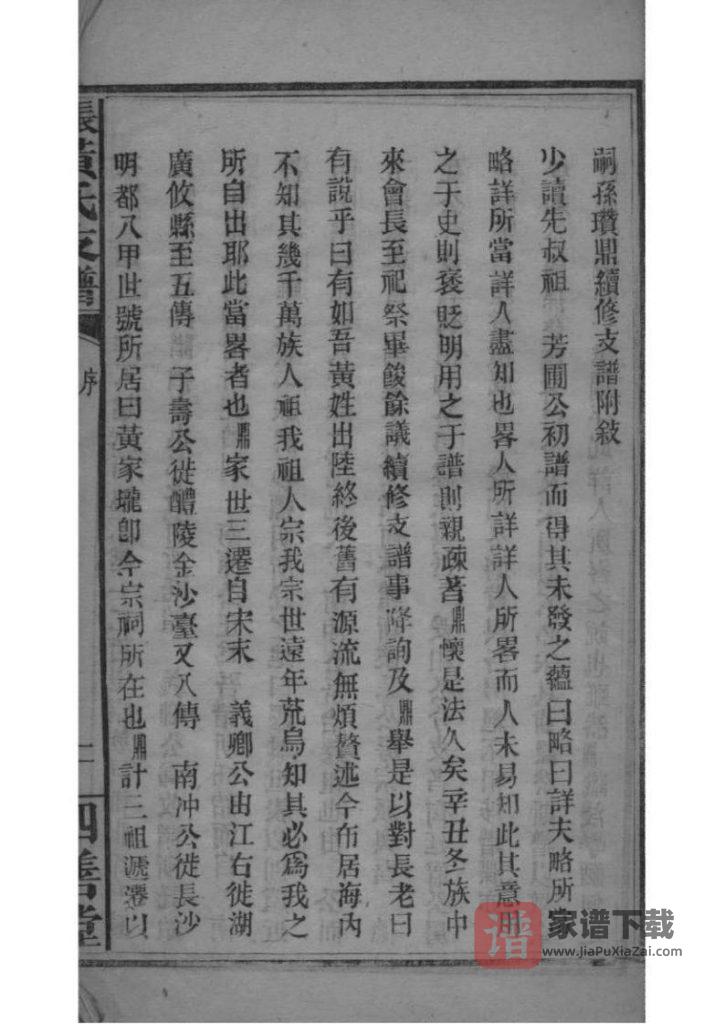 嗣孫瓚鼎續修支譜附敍
少讀先叔祖　芳圃公初譜而得其未發之蘊曰略曰詳夫略所
略詳所當詳人盡知也畧人所詳詳人所畧而人未易知此其意用
之于史則褒貶明用之于譜則親疎著鼎懷是法久矣辛丑冬族中
來會長至祀祭畢餕餘議續修支譜事降詢及鼎舉是以對長老曰
有說乎曰有如吾黃姓出陸終後舊有源流無煩贅述今布居海內
不知其幾千萬族人祖我祖人宗我宗世遠年荒烏知其必爲我之
所自出耶此當畧者也鼎家世三遷自宋末　義卿公由江右徙湖
廣攸縣至五傳　子壽公徙醴陵金沙臺又八傳　南冲公徙長沙
明都八甲世號所居曰黃家壠卽今宗祠所在也鼎計三祖遞遷以
黃氏支譜
序
二
四善堂
谱
家谱下载
www.jiaPuXiaZai.com